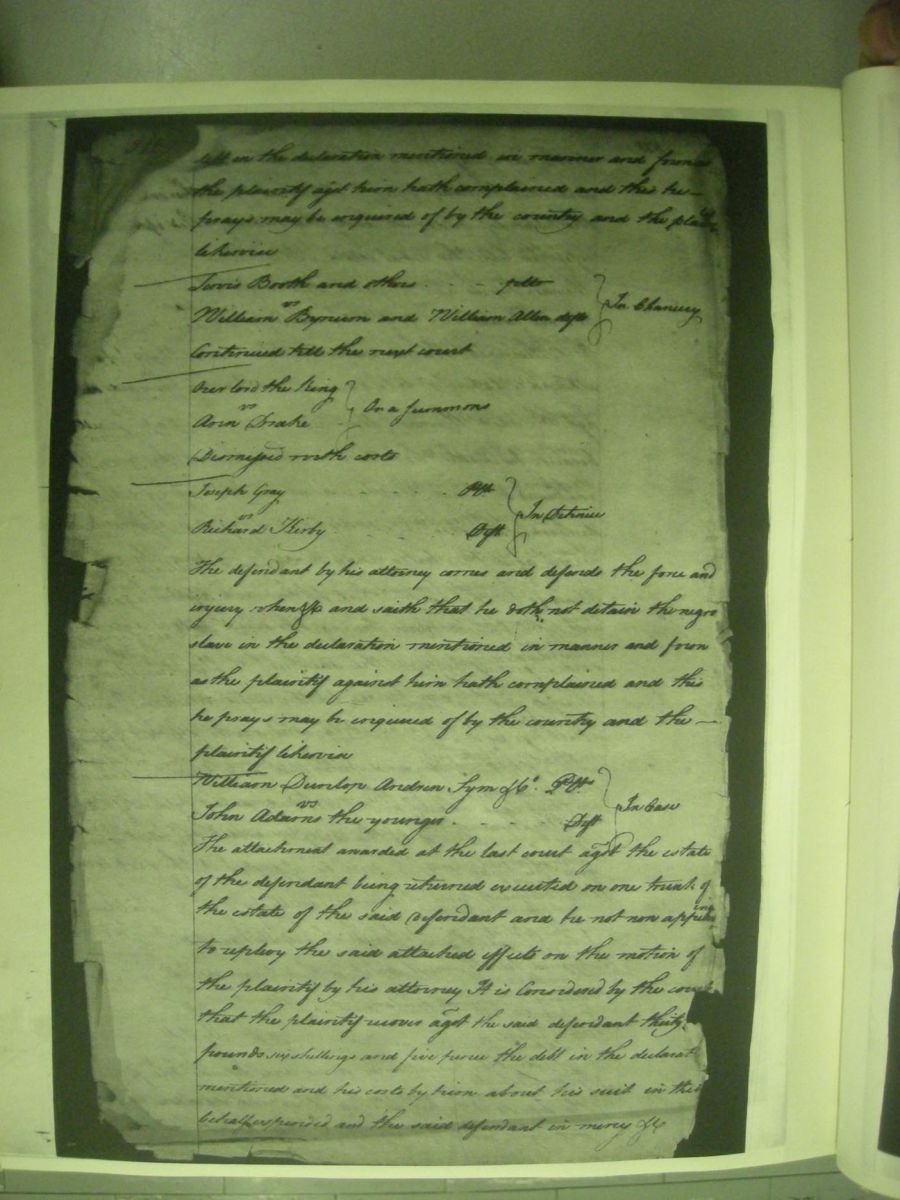 debt in the declaration mentioned in manner and form as
the plaintif agst him hath complained and this he
prays may be enquired of by the country and the plaintif
likewise
Jervis Booth and others pltfs
vs
William Bynum and William Allen defts
In Chancery
Continued till the next court
Our lord the King
vs
Aron Drake
On a summons
Dismissed with costs
Joseph Gray Plt
vs
Richard Kirby Deft
In Detinue
The defendant by his attorney comes and defends the force and
injury when &c and saith that he doth not detain the negro
slave in the declaration mentioned in manner and form
as the plaintif against him hath complained and this
he prays may be enquired of by the country and the
plaintif likewise
William Dunlop Andrew Sym & Co. Plts
vs
John Adams the younger Deft
In Case
The attachment awarded at the last court agst the estate
of the defendant being returned executed on one trunk of
the estate of the said defendant and he not now appearing
to replevy the said attached effects on the motion of
the plaintif by his attorney It is Considered by the court
that the plaintif recover agst the said defendant thirty
pounds six shillings and five pence the debt in the declarat
mentioned and his costs by him about his suit in this
behalf expended and the said defendant in mercy &c